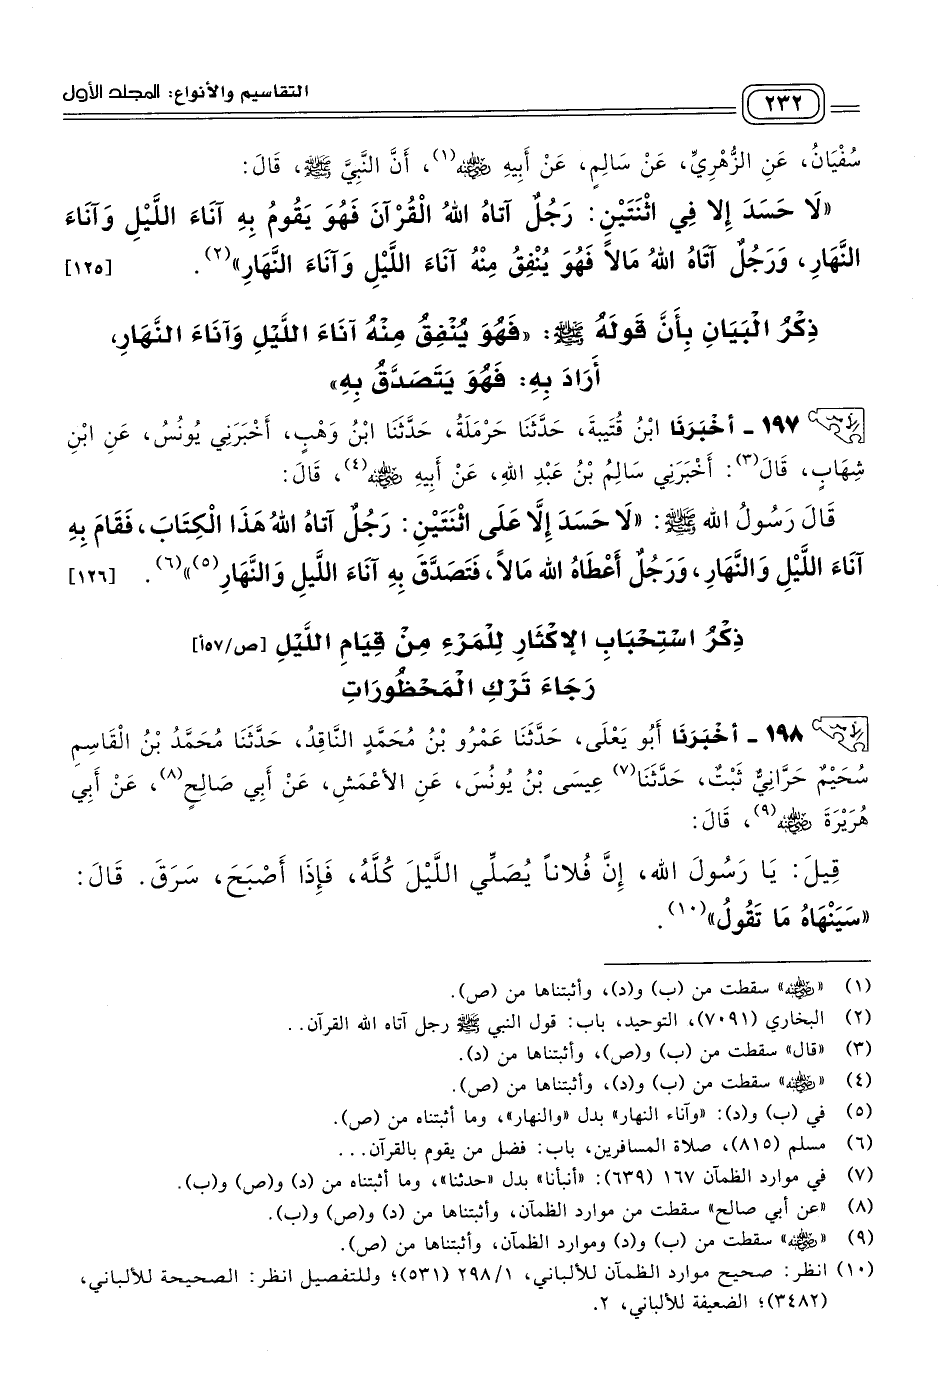 التقاسيم والأنواع: المجلد الأول
٢٣٢
سُفْيَانُ، عَنِ الزُّهْرِيِّ، عَنْ سَالِمٍ، عَنْ أَبِيهِ رضي الله عنه(١)، أَنَّ النَّبِيَّ ﷺ، قَالَ:
«لَا حَسَدَ إِلا فِي اثْنَتَيْنِ: رَجُلٌ آتَاهُ اللهُ الْقُرْآنَ فَهُوَ يَقُومُ بِهِ آنَاءَ اللَّيْلِ وَآنَاءَ
النَّهَارِ، وَرَجُلٌ آتَاهُ اللهُ مَالاً فَهُوَ يُنْفِقُ مِنْهُ آنَاءَ اللَّيْلِ وَآنَاءَ النَّهَارِ»(٢). [١٢٥]
ذِكْرُ الْبَيَانِ بِأَنَّ قَوْلَهُ ﷺ: «فَهُوَ يُنْفِقُ مِنْهُ آنَاءَ اللَّيْلِ وَآنَاءَ النَّهَارِ،
أَرَادَ بِهِ: فَهُوَ يَتَصَدَّقُ بِهِ»
١٩٧ - أخْبَرَنَا ابْنُ قُتَيبةَ، حَدَّثَنَا حَرْمَلَةُ، حَدَّثَنَا ابْنُ وَهْبٍ، أَخْبَرَنِي يُونُسُ، عَنِ ابْنِ
شِهَابٍ، قَالَ(٣): أَخْبَرَنِي سَالِمُ بْنُ عَبْدِ اللهِ، عَنْ أَبِيهِ رضي الله عنه(٤)، قَالَ:
قَالَ رَسُولُ الله ﷺ: «لَا حَسَدَ إِلَّا عَلَى اثْنَتَيْنِ: رَجُلٌ آتاهُ اللهُ هَذَا الْكِتَابَ، فَقَامَ بِهِ
آنَاءَ اللَّيْلِ وَالنَّهَارِ، وَرَجُلٌ أَعْطَاهُ الله مَالاً، فَتَصَدَّقَ بِهِ آنَاءَ اللَّيلِ وَالنَّهَارِ(٥)»(٦). [١٢٦]
ذِكْرُ اسْتِحْبَابِ الإكْثَارِ لِلْمَرْءِ مِنْ قِيَامِ اللَّيْلِ [ص/٥٧أ]
رَجَاءَ تَرْكِ الْمَحْظُورَاتِ
١٩٨ - أخْبَرَنَا أَبُو يَعْلَى، حَدَّثَنَا عَمْرُو بْنُ مُحَمَّدٍ النَّاقِدُ، حَدَّثَنَا مُحَمَّدُ بْنُ الْقَاسِمِ
سُحَيْمٌ حَرَّانِيٌّ ثَبْتٌ، حَدَّثَنَا(٧) عِيسَى بْنُ يُونُسَ، عَنِ الأعْمَشِ، عَنْ أَبِي صَالِحٍ(٨)، عَنْ أَبِي
هُرَيْرَةَ رضي الله عنه(٩)، قَالَ:
قِيلَ: يَا رَسُولَ الله، إِنَّ فُلَاناً يُصَلِّي اللَّيْلَ كُلَّهُ، فَإِذَا أَصْبَحَ، سَرَقَ. قَالَ:
«سَيَنْهَاهُ مَا تَقُولُ»(١٠).
(١) «رضي الله عنه» سقطت من (ب) و(د)، وأثبتناها من (ص).
(٢) البخاري (٧٠٩١)، التوحيد، باب: قول النبي ﷺ رجل آتاه الله القرآن..
(٣) «قال» سقطت من (ب) و(ص)، وأثبتناها من (د).
(٤) «رضي الله عنه» سقطت من (ب) و(د)، وأثبتناها من (ص).
(٥) في (ب) و(د): «وآناء النهار» بدل «والنهار»، وما أثبتناه من (ص).
(٦) مسلم (٨١٥)، صلاة المسافرين، باب: فضل من يقوم بالقرآن...
(٧) في موارد الظمآن ١٦٧ (٦٣٩): «أنبأنا» بدل «حدثنا»، وما أثبتناه من (د) و(ص) و(ب).
(٨) «عن أبي صالح» سقطت من موارد الظمآن، وأثبتناها من (د) و(ص) و(ب).
(٩) «رضي الله عنه» سقطت من (ب) و(د) وموارد الظمآن، وأثبتناها من (ص).
(١٠) انظر: صحيح موارد الظمآن للألباني، ٢٩٨/١ (٥٣١)؛ وللتفصيل انظر: الصحيحة للألباني،
(٣٤٨٢)؛ الضعيفة للألباني، ٢.